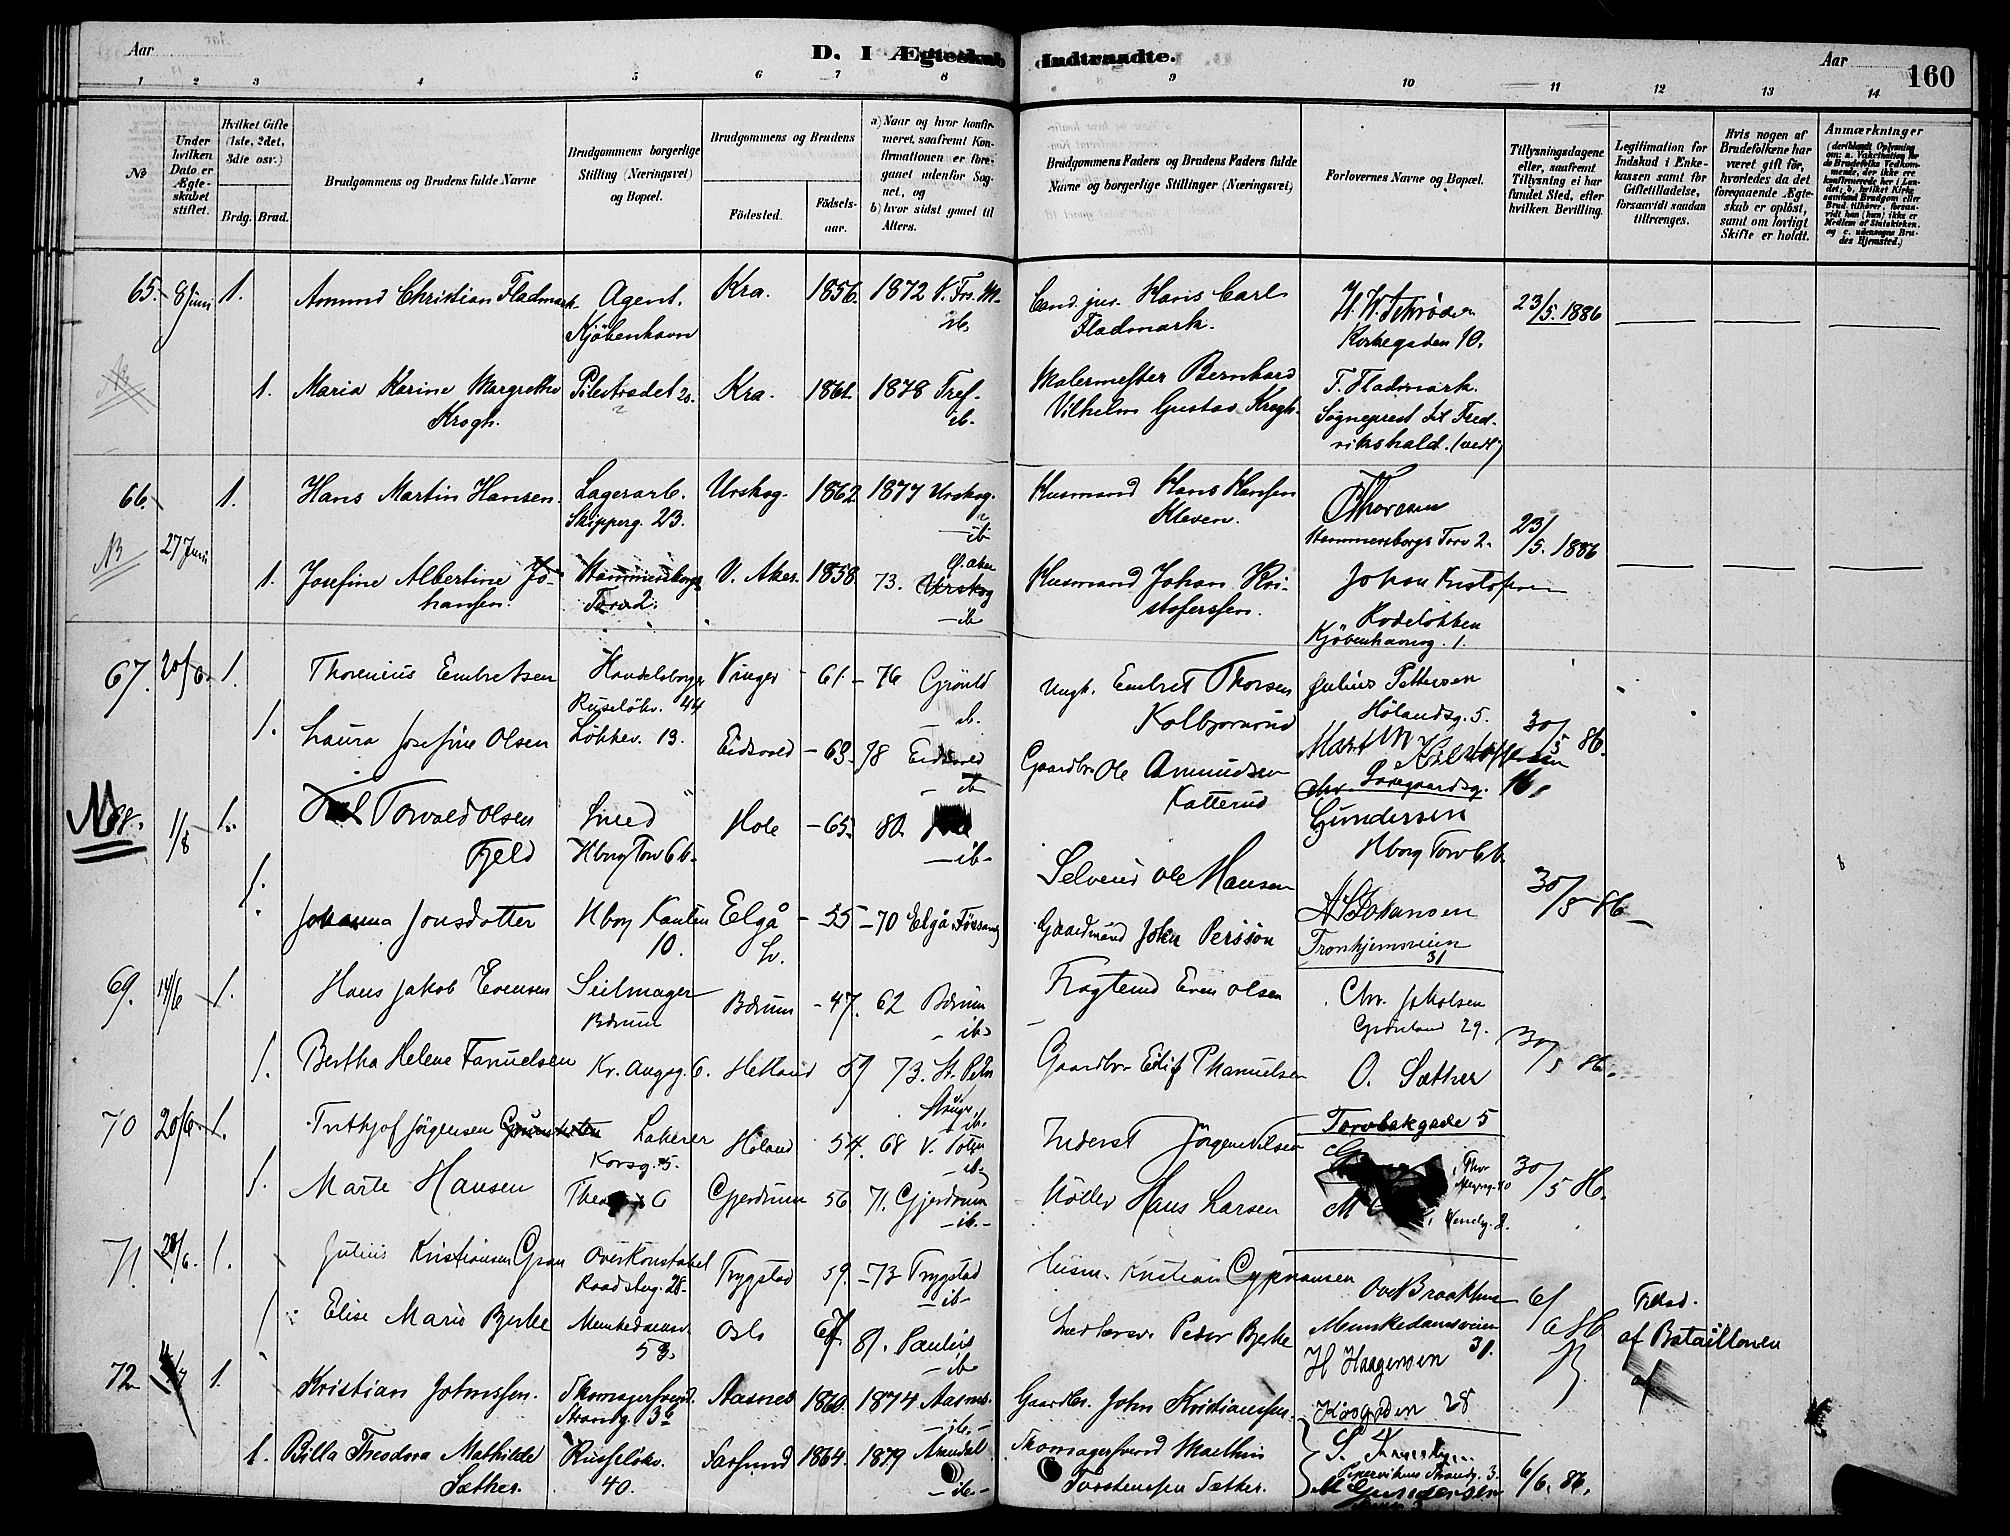 Aar
D. I Ægteskab Indtraadte.
Aar
160
1 2 3 4 5 6 7 8 9 10 11 12 13 14
No
Under hvilken Dato er Ægteskabet stiftet.
Hvilket Gifte (1ste, 2det, 3die osv.)
Brdg. Brud.
Brudgommens og Brudens fulde Navne
Brudgommens borgerlige Stilling (Næringsvei) og Bopæl.
Brudgommens og Brudens
Fødested.
Fødselsaar.
a) Naar og hvor konfirmeret, saafremt Konfirmationen er foregaaet udenfor Sognet, og
b) hvor sidst gaaet til Alters.
Brudgommens Faders og Brudens Faders fulde Navne og borgerlige Stillinger (Næringsvei)
Forlovernes Navne og Bopæl.
Tillysningsdagene eller, saafremt Tillysning ei har fundet Sted, efter hvilken Bevilling.
Legitimation for Indskud i Enkekassen samt for Giftetilladelse, forsaavidt saadan tiltrænges.
Hvis nogen af Brudefolkene har været gift før, hvorledes da det foregaaende Ægteskab er opløst, samt om lovligt Skifte er holdt.
Anmærkninger
65. 8 Juni 1. Amund Christian Fladmark. Agent. Kra. 1856. 1872 V. Frs. M. Cand. jur. Hans Carl 23/5. 1886
Kjöbenhavn ib. Fladmark. Kirkegaden 10.
1. Maria Karine Margrethe Pilestrædet 20. Kra. 1861. 1878 Tref. Malermester Bernhard F. Fladmark.
Krogh. ib. Vilhelm Gustav Krogh. Sogneprest til Fredrikshald.
66. 1. Hans Martin Hansen. Lagerarb. Urskog. 1862. 1877 Urskog. Husmand Hans Hansen Thoresen
Skipperg. 23. ib Kleven. Hammersborgs Torv 2. 23/5. 1886
NB 27 Juni
1. Josefine Albertine Johansen. Hammersborgs V. Aker. 1858. 73. Urskog Husmand Johan Kristoferssen. Johan Kristofersen
Torv 2. ib Rodeløkken
Kjøbenhavnsg. 1.
67. 20/6. 1. Thorenius Embretsen Handelsborger Vinger - 61 - 76 Grønld Ungk. Embret Thorsen Julius Pettersen
Ruseløkv. 44 ib. Kolbjørnrud Hølandsg. 5. 30/5 86.
1. Laura Josefine Olsen Løkkev. 13. Eidsvold - 63. 78 Eidsvold Gaardbr. Ole Amundsen Martin Kristoffersen
ib Katterud 16.
NB 68. 1/8 1. Torvald Olsen Smed Hole - 65. 80. Selveier Ole Hansen Chr. Gundersen
Fjeld Hborg Torv 6b. ib Hborg Torv 6b.
1. Johanna Jonsdotter Hborg Kanten Elgå - 55 - 70 Elgå Gaardmand John Persson A. Johansen 30/5 86.
10. Sv. Tronhjemsveien 31
69. 14/6 1. Hans Jakob Evensen Seilmager Bærum - 47. 62 Bærum Even Olsen Chr. Jakobsen
Bærum ib. Grønland 29. 30/5 86.
1. Bertha Helene Fanuelsen Kr. Augsg. 6. Hetland 59 73. St. Petri Gaardbr. Eilif Phanuelsen O. Sæther
ib. Torvbakgade 5
70 20/6. 1. Frithjof Jørgensen Lakerer Høland 54. 68 V. Toten Inderst Jørgen Nilsen
Korsg. 5. ib 30/5 86.
1. Marte Hansen Gjerdrum 56 71. Gjerdrum Møller Hans Larsen
ib.
71. 28/6. 1. Julius Kristiansen Gran Overkonstabel Trygstad 59. - 73 Trygstad Husm. Kristian Cyprianssen Ove Braathen 6/6 86 Tillad. af Bataillonen
Raadstug. 28. ib Munkedamsveien 31.
Elise Marie Bjerke Munkedamsv. Oslo 67 81. Paulus Peder Bjerke H Haagensen
53. ib Korsgaden 28
72. 1. Kristian Johnssen. Skomagersvend. Aasnes 1860. 1874 Aasnes. Gaardbr. John Kristianssen.
Strandg. 36 ib.
1. Billa Theodora Mathilde Russeløkv. Farsund 1864. 1879 Arendal Skomagersvend Mathias Pipervikens Strandg. 3. 6/6. 86.
Sæther. 40. ib. Torstenssen Sæther. M Gundersen